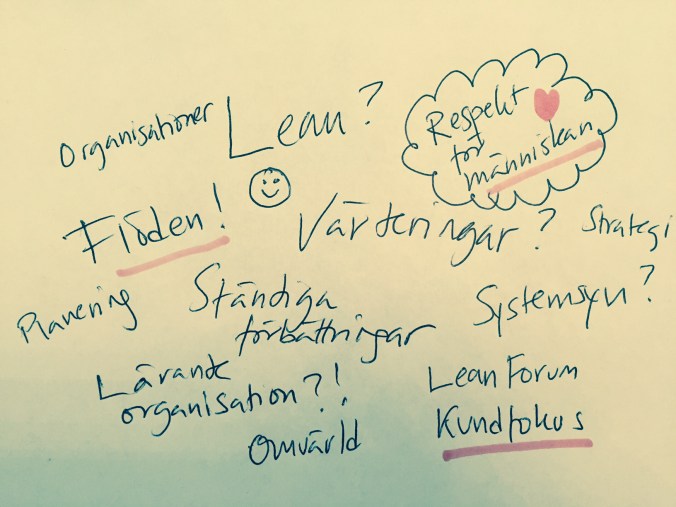 Organisationer
Lean?
Respekt
för
människan
Flöden!
Värderingar?
Strategi
Planering
Ständiga
förbättringar
Systemsyn?
Lärande
organisation?!
Lean Forum
Kundfokus
Omvärld